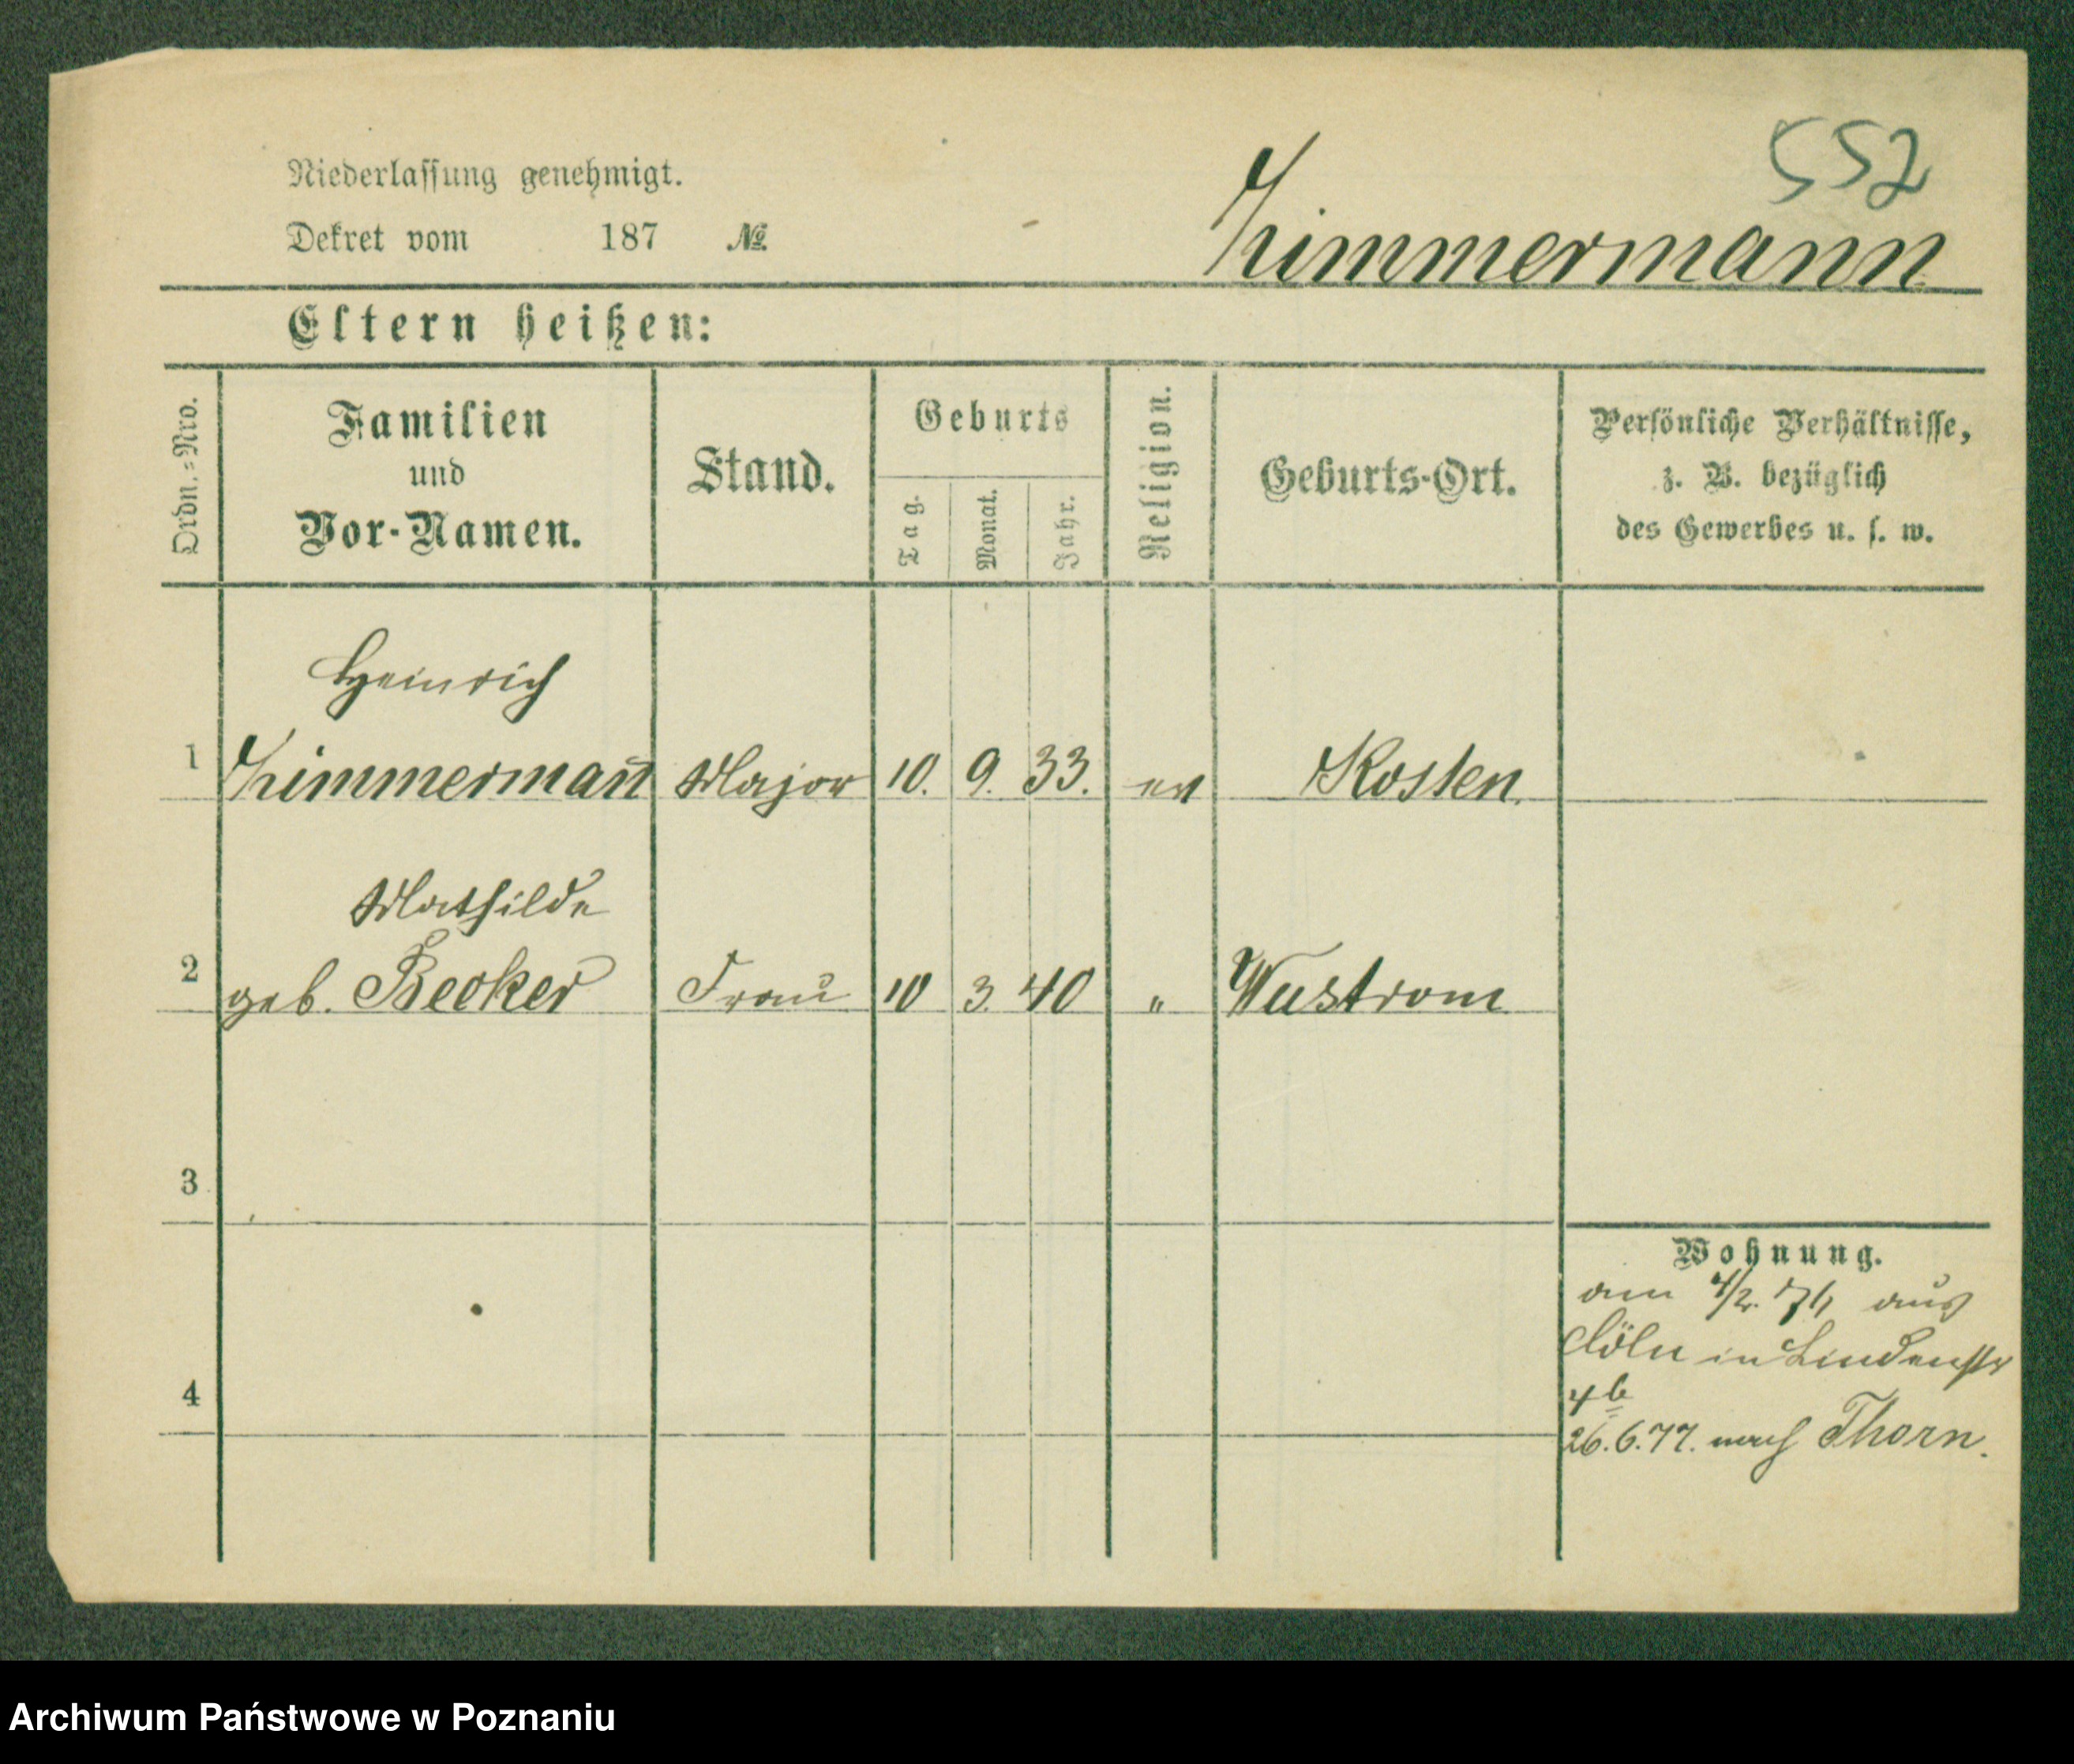 552
Niederlassung genehmigt.
Dekret vom 187 №
Zimmermann
Eltern heißen:
Ordn.=Nro.
Familien
und
Vor-Namen.
Stand.
Geburts
Tag.
Monat.
Jahr.
Religion.
Geburts-Ort.
Persönliche Verhältnisse,
z. B. bezüglich
des Gewerbes u. s. w.
Heinrich
1 Zimmerman̄ Major 10. 9. 33. ev Kosten.
Mathilde
2 geb. Becker Frau 10 3. 40 " Wustrom
3
Wohnung.
am 4/2. 76 aus
Cöln in Lindenstr
4
4b
26.6.77. nach Thorn.
Archiwum Państwowe w Poznaniu